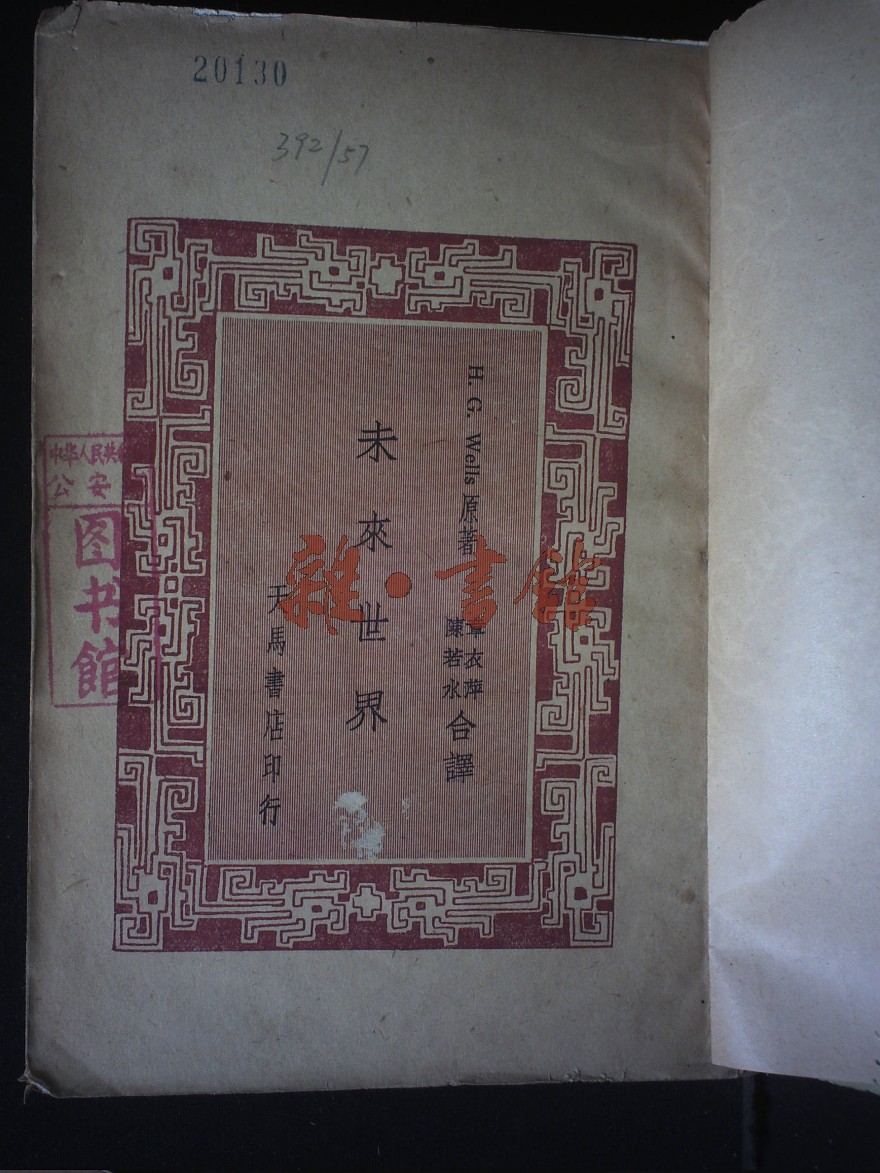 20130
392/57
H. G. Wells 原著
章衣萍
陳若水
合譯
未來世界
天馬書店印行
中华人民共
公安
图书馆
雜·書館